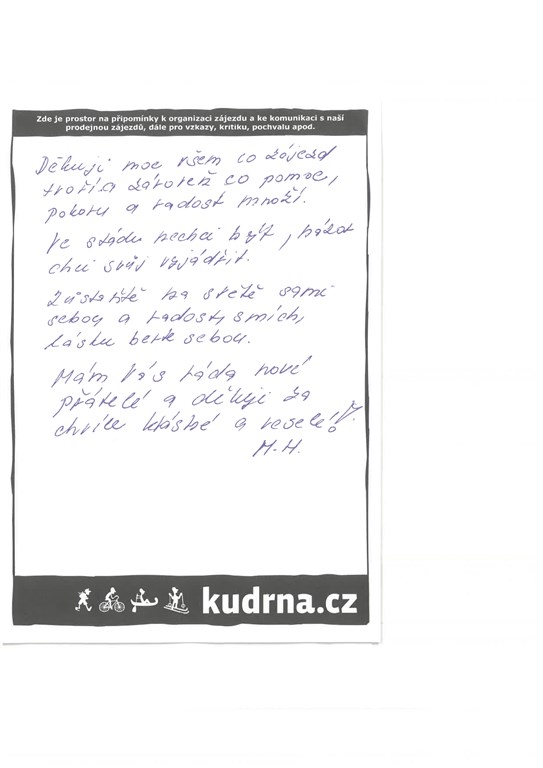 Zde je prostor na připomínky k organizaci zájezdu a ke komunikaci s naší
prodejnou zájezdů, dále pro vzkazy, kritiku, pochvalu apod.
Děkuji moc všem co zájezd
tvoří a zároveň co pomoc,
pokoru a radost množí.
Ve stádu nechci být, názor
chci svůj vyjádřit.
Zůstaňtě na světě sami
sebou a radost, smích,
lásku berte sebou.
Mám Vás ráda nové
přátelé a děkuji za
chvíle krásné a veselé!
M.H.
kudrna.cz